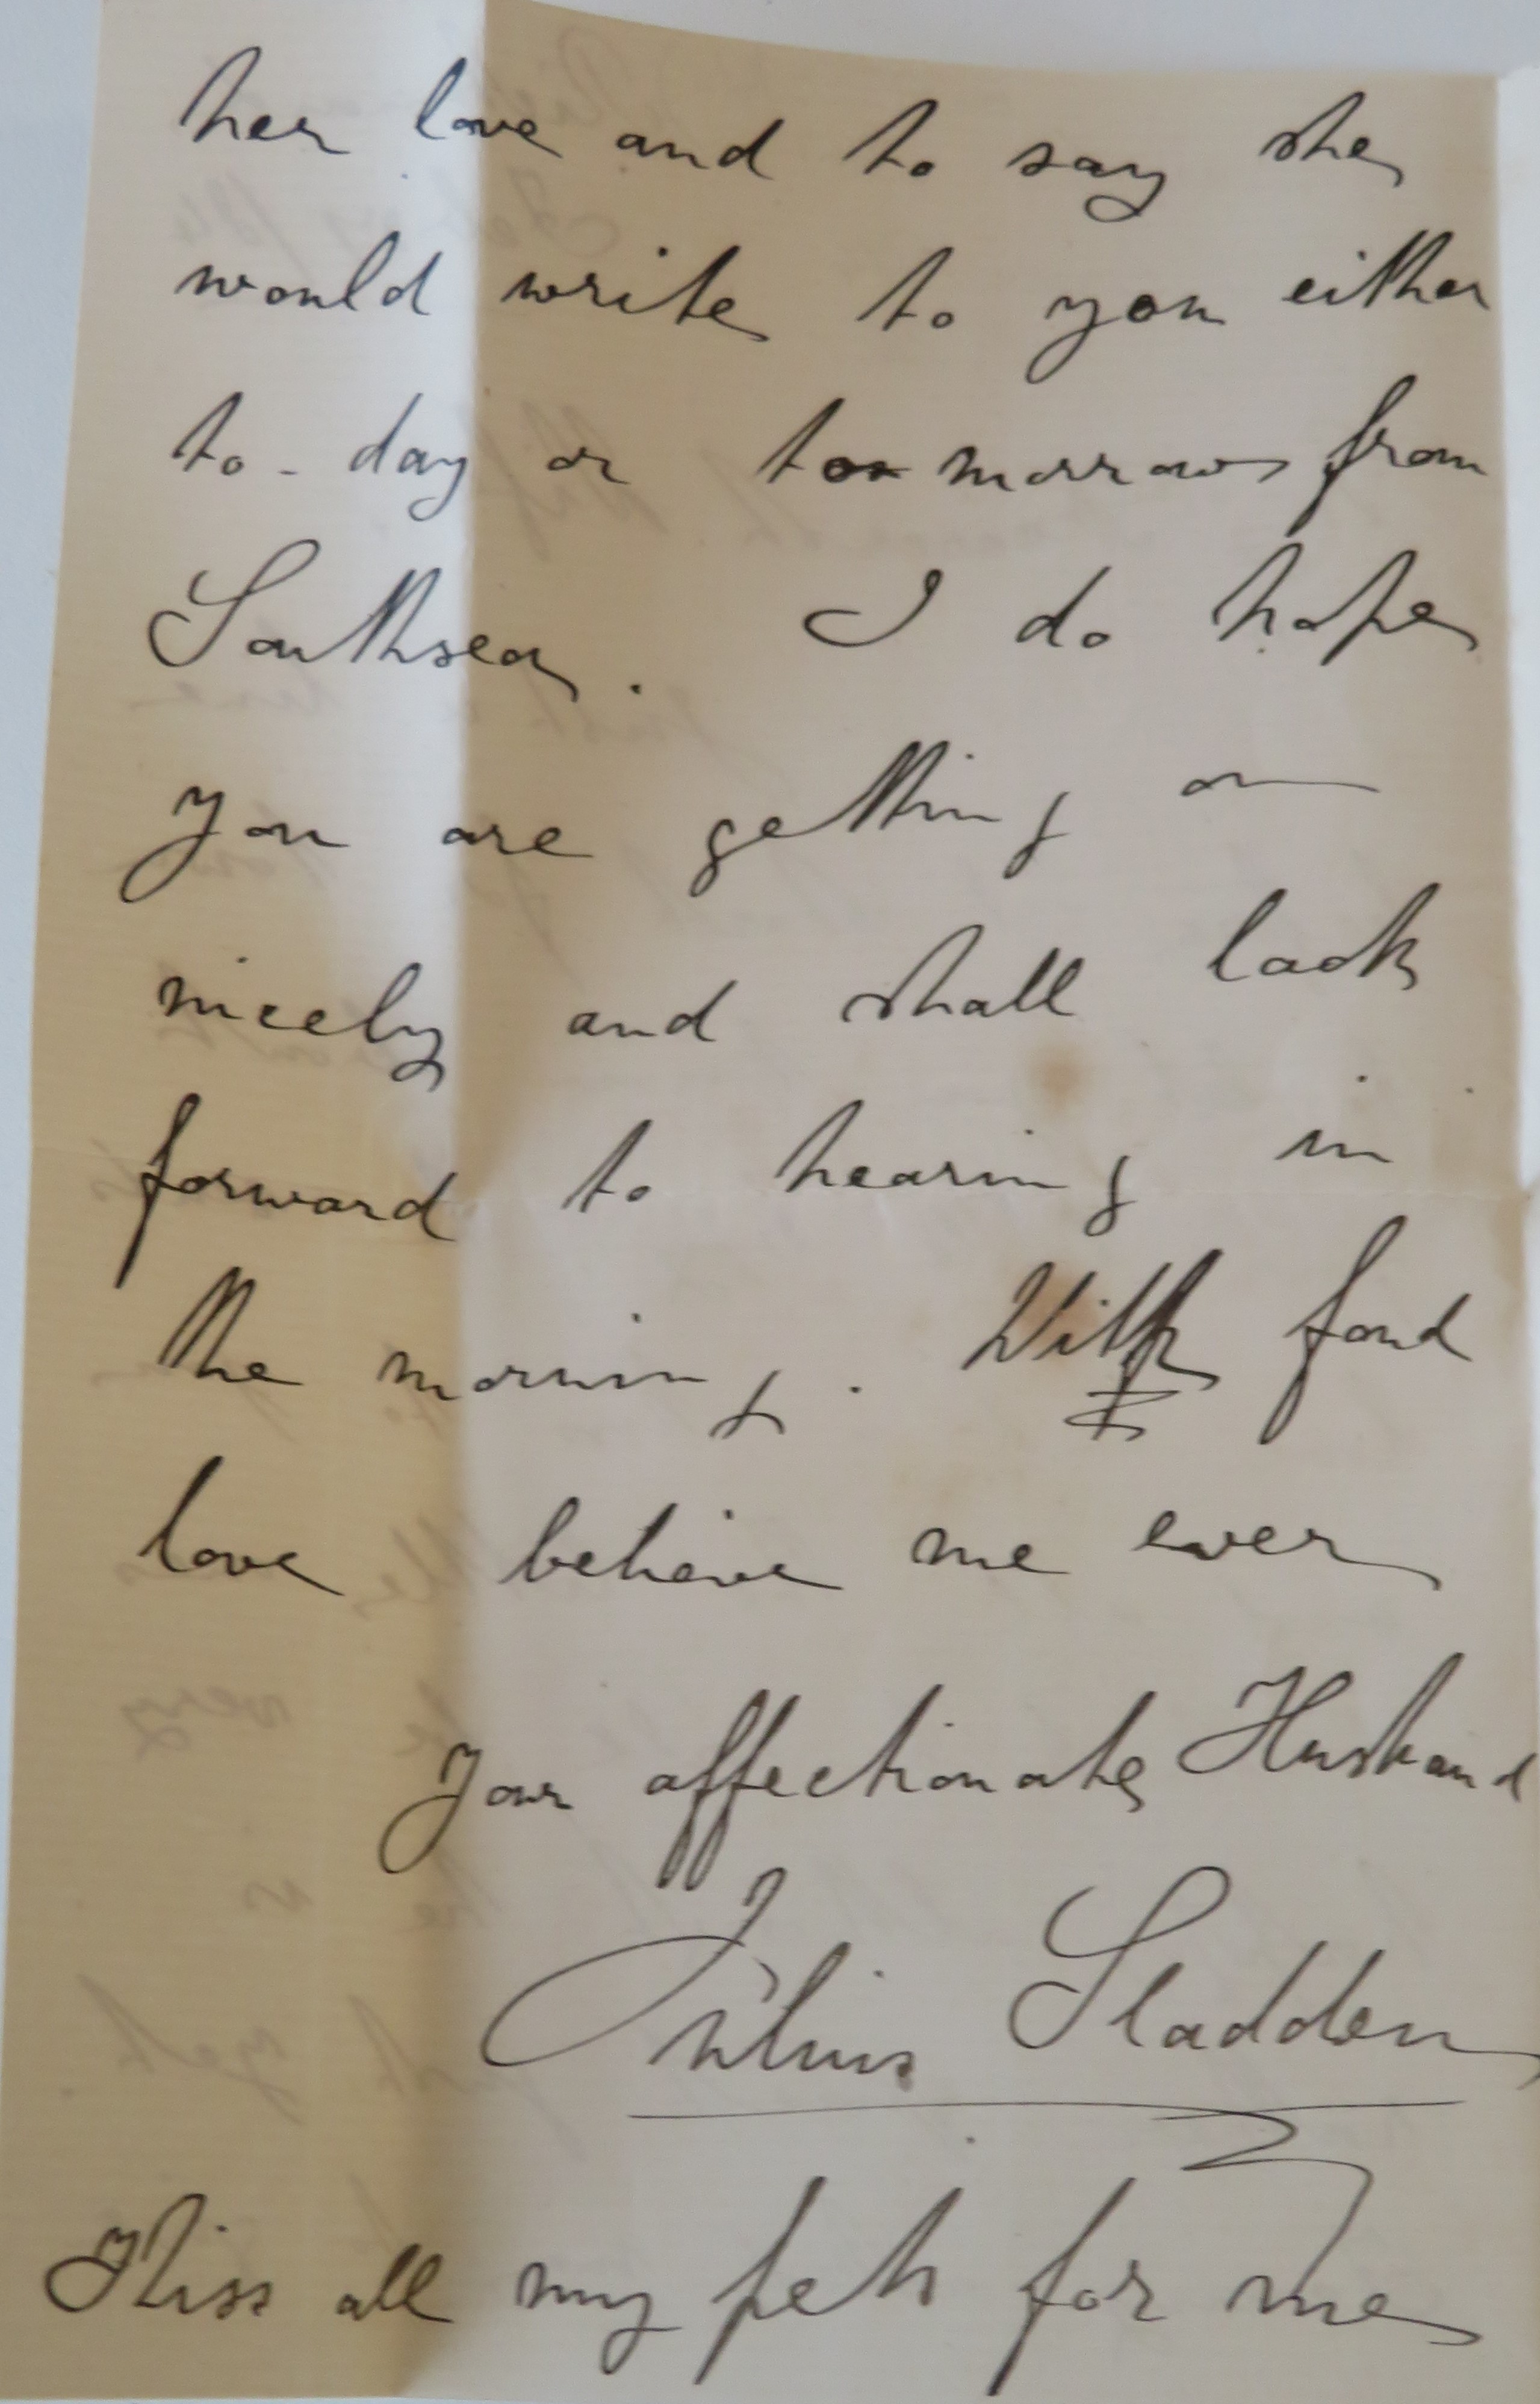 her love and to say she
would write to you either
to-day or tomorrow from
Southsea. I do hope
you are getting on
nicely and shall look
forward to hearing in
the morning. With fond
love believe me ever
Your affectionate Husband
Julius Sladden
Kiss all my pets for me